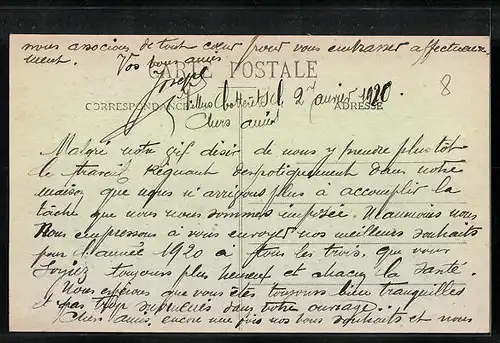 nous associons de tout cœur pour vous embrasser affectueuse
ment. Vos bons amis
Joseph
CARTE POSTALE
CORRESPONDANCE ADRESSE
Villers Cotterets le 2 janvier 1920
8
Chers amis
Malgré notre vif désir de nous y prendre plus tôt
le travail régnant despotiquement dans notre
maison que nous n'arrivons plus à accomplir la
tâche que nous nous sommes imposée. Néanmoins nous
Nous empressons à vous envoyer nos meilleurs souhaits
pour l'année 1920 à tous les trois, que vous
soyiez toujours plus heureux et chacun la santé.
Nous espérons que vous êtes toujours bien tranquilles
et pas trop dans votre ouvrage..
Chers amis, encore une fois nos bons souhaits et nous